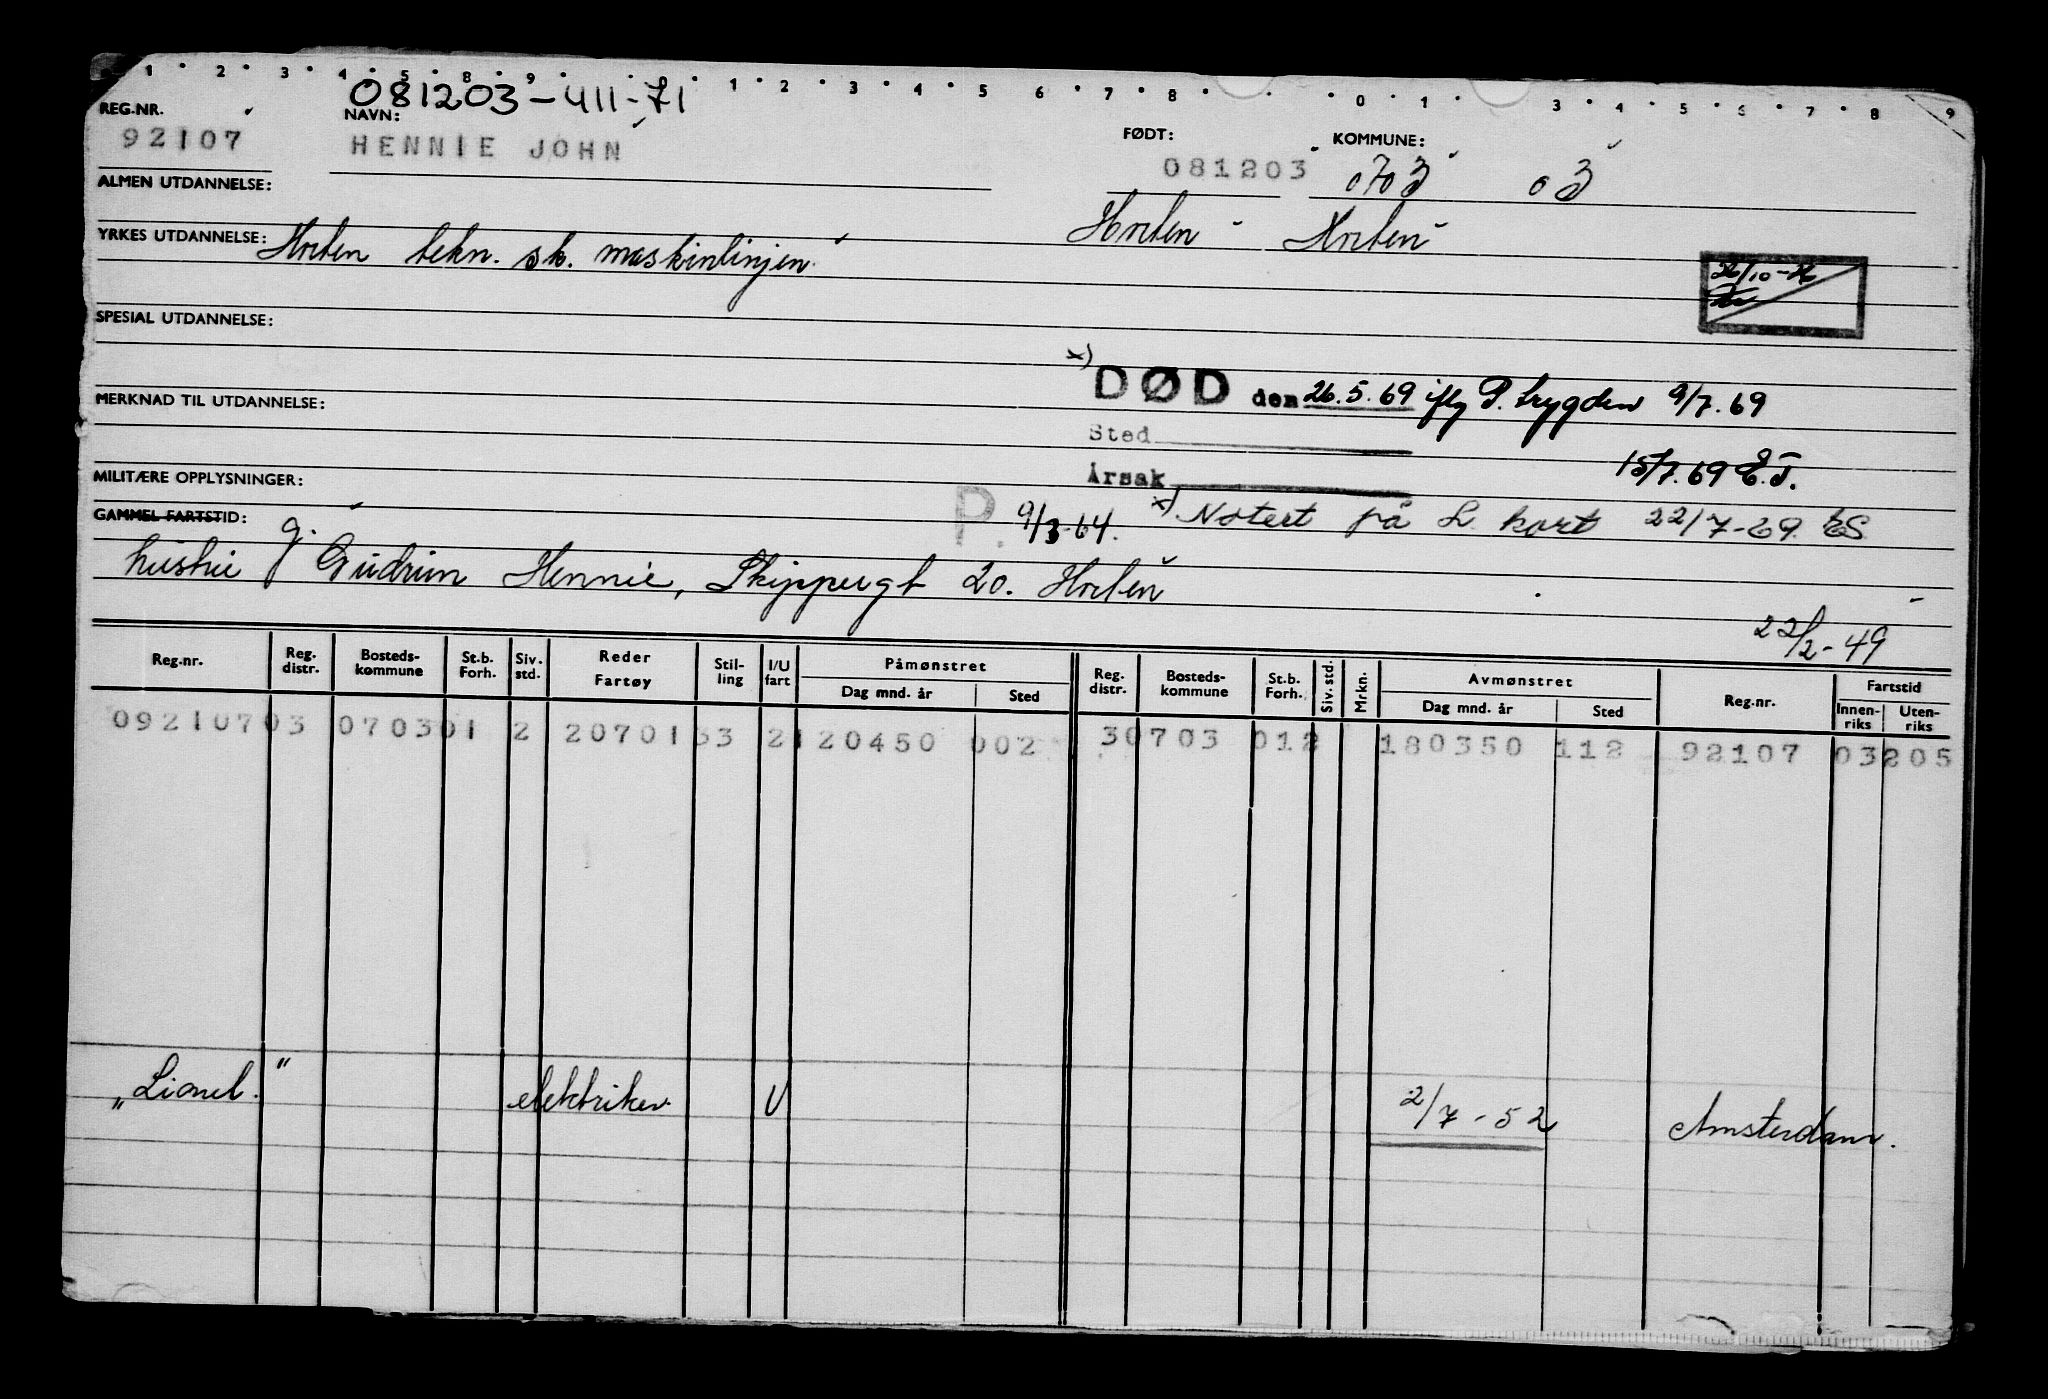 1 2 3 4 5 8 9 1 2 3 4 5 6 7 8 0 1 3 4 5 6 7 8 9
081203-411-71
REG.NR. NAVN: FØDT: KOMMUNE:
92107 HENNIE JOHN 081203 0703 03
ALMEN UTDANNELSE:
Horten - Horten
YRKES UTDANNELSE: Horten tekn. sk. maskinlinjen
26/10-76
SPESIAL UTDANNELSE:
x) DØD den 26.5.69 iflg P. trygden 9/7.69
MERKNAD TIL UTDANNELSE:
Sted
15/7.69 E.T.
MILITÆRE OPPLYSNINGER: Årsak
GAMMEL FARTSTID: P. 9/3-64. x) Notert på L kort 22/7-69. ES
hustru g. Gudrun Hennie, Skippergt 20. Horten
22/2-49
Reg.nr. Reg. distr. Bosteds-kommune St.b. Forh. Siv. std. Reder Fartøy Stil-ling I/U fart Påmønstret Dag mnd. år Sted Reg. distr. Bosteds-kommune St.b. Forh. Siv. std. Mrkn. Avmønstret Dag mnd. år Sted Reg.nr. Fartstid Innen-riks Uten-riks
09210703 070301 2 2070133 2120450 002 30703 012 180350 112 92107 03205
„Lionel." elektriker U 2/7-52 Amsterdam.